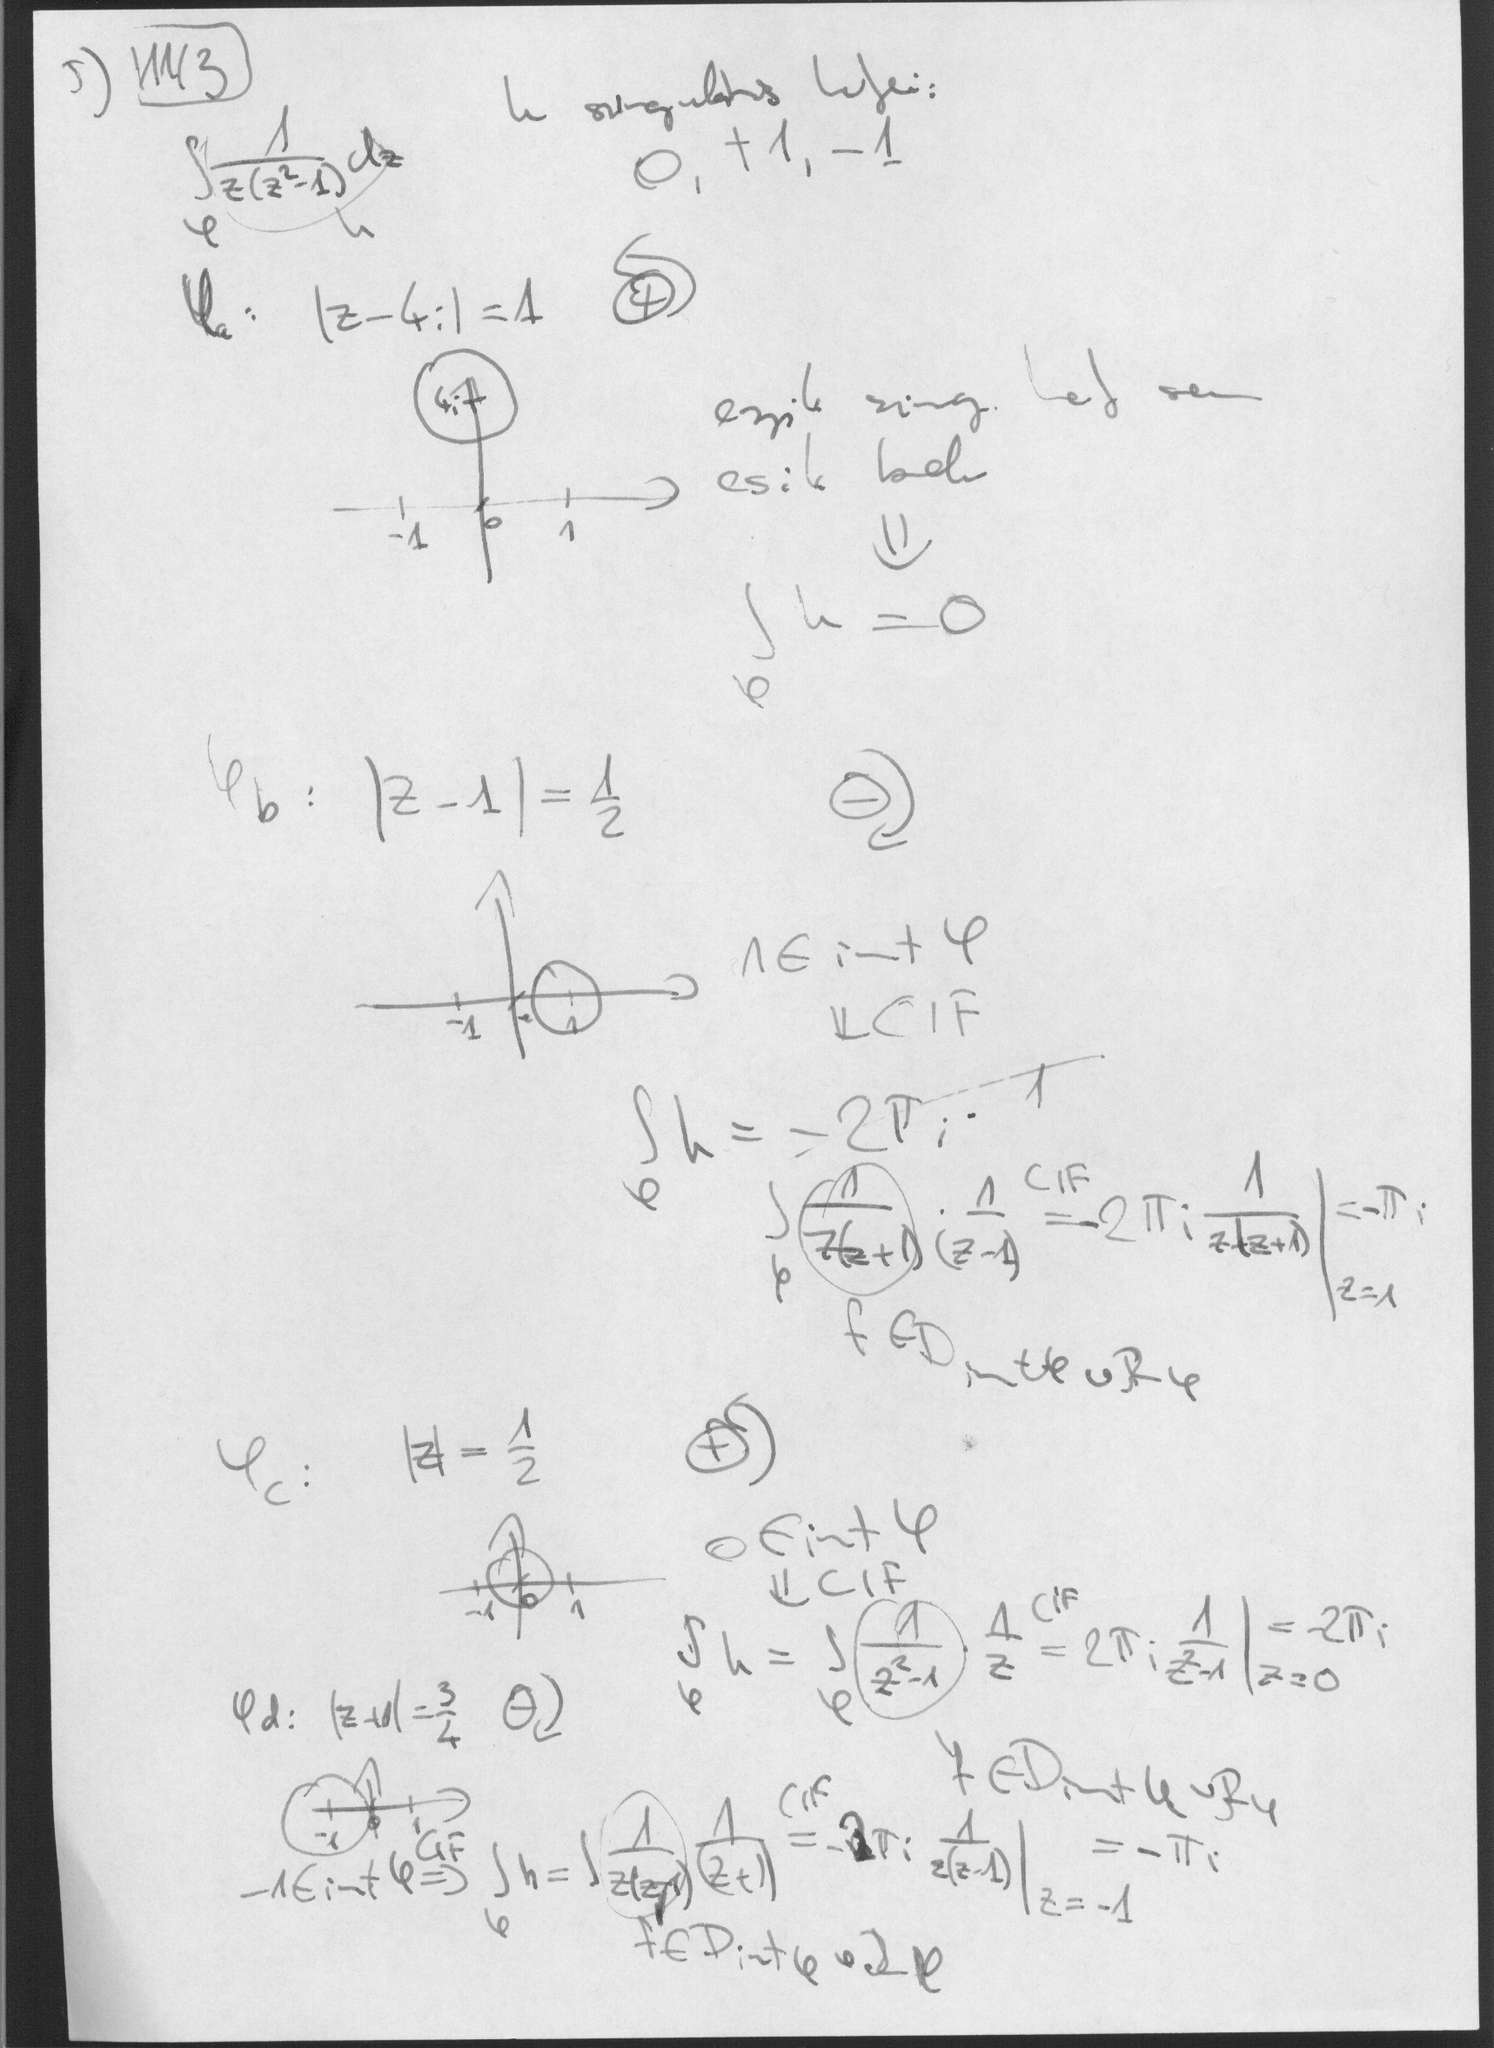 5) HW3
h singuláris helyei:
∫_φ 1/(z(z²-1)) dz
0, +1, -1
h
φa: |z-4i| = 1 ⊕
4i
-1 0 1
egyik sing. hely sem
esik bele
⇓
∫_φ h = 0
φb: |z-1| = 1/2 ⊖
-1 1
1 ∈ int φ
⇓ CIF
∫_φ h = -2πi · 1
∫_φ 1/(z(z+1)) · 1/(z-1) =^CIF -2πi 1/(z(z+1)) |_{z=1} = -πi
f ∈ D int φ ∪ R φ
φc: |z| = 1/2 ⊕
-1 0 1
0 ∈ int φ
⇓ CIF
∫_φ h = ∫_φ 1/(z²-1) · 1/z =^CIF 2πi 1/(z²-1) |_{z=0} = -2πi
f ∈ D int φ ∪ R φ
φd: |z+1| = 3/4 ⊖
-1 0 1
-1 ∈ int φ ⇒^CIF ∫_φ h = ∫ 1/(z(z-1)) 1/(z+1) =^CIF -2πi 1/(z(z-1)) |_{z=-1} = -πi
f ∈ D int φ ∪ R φ